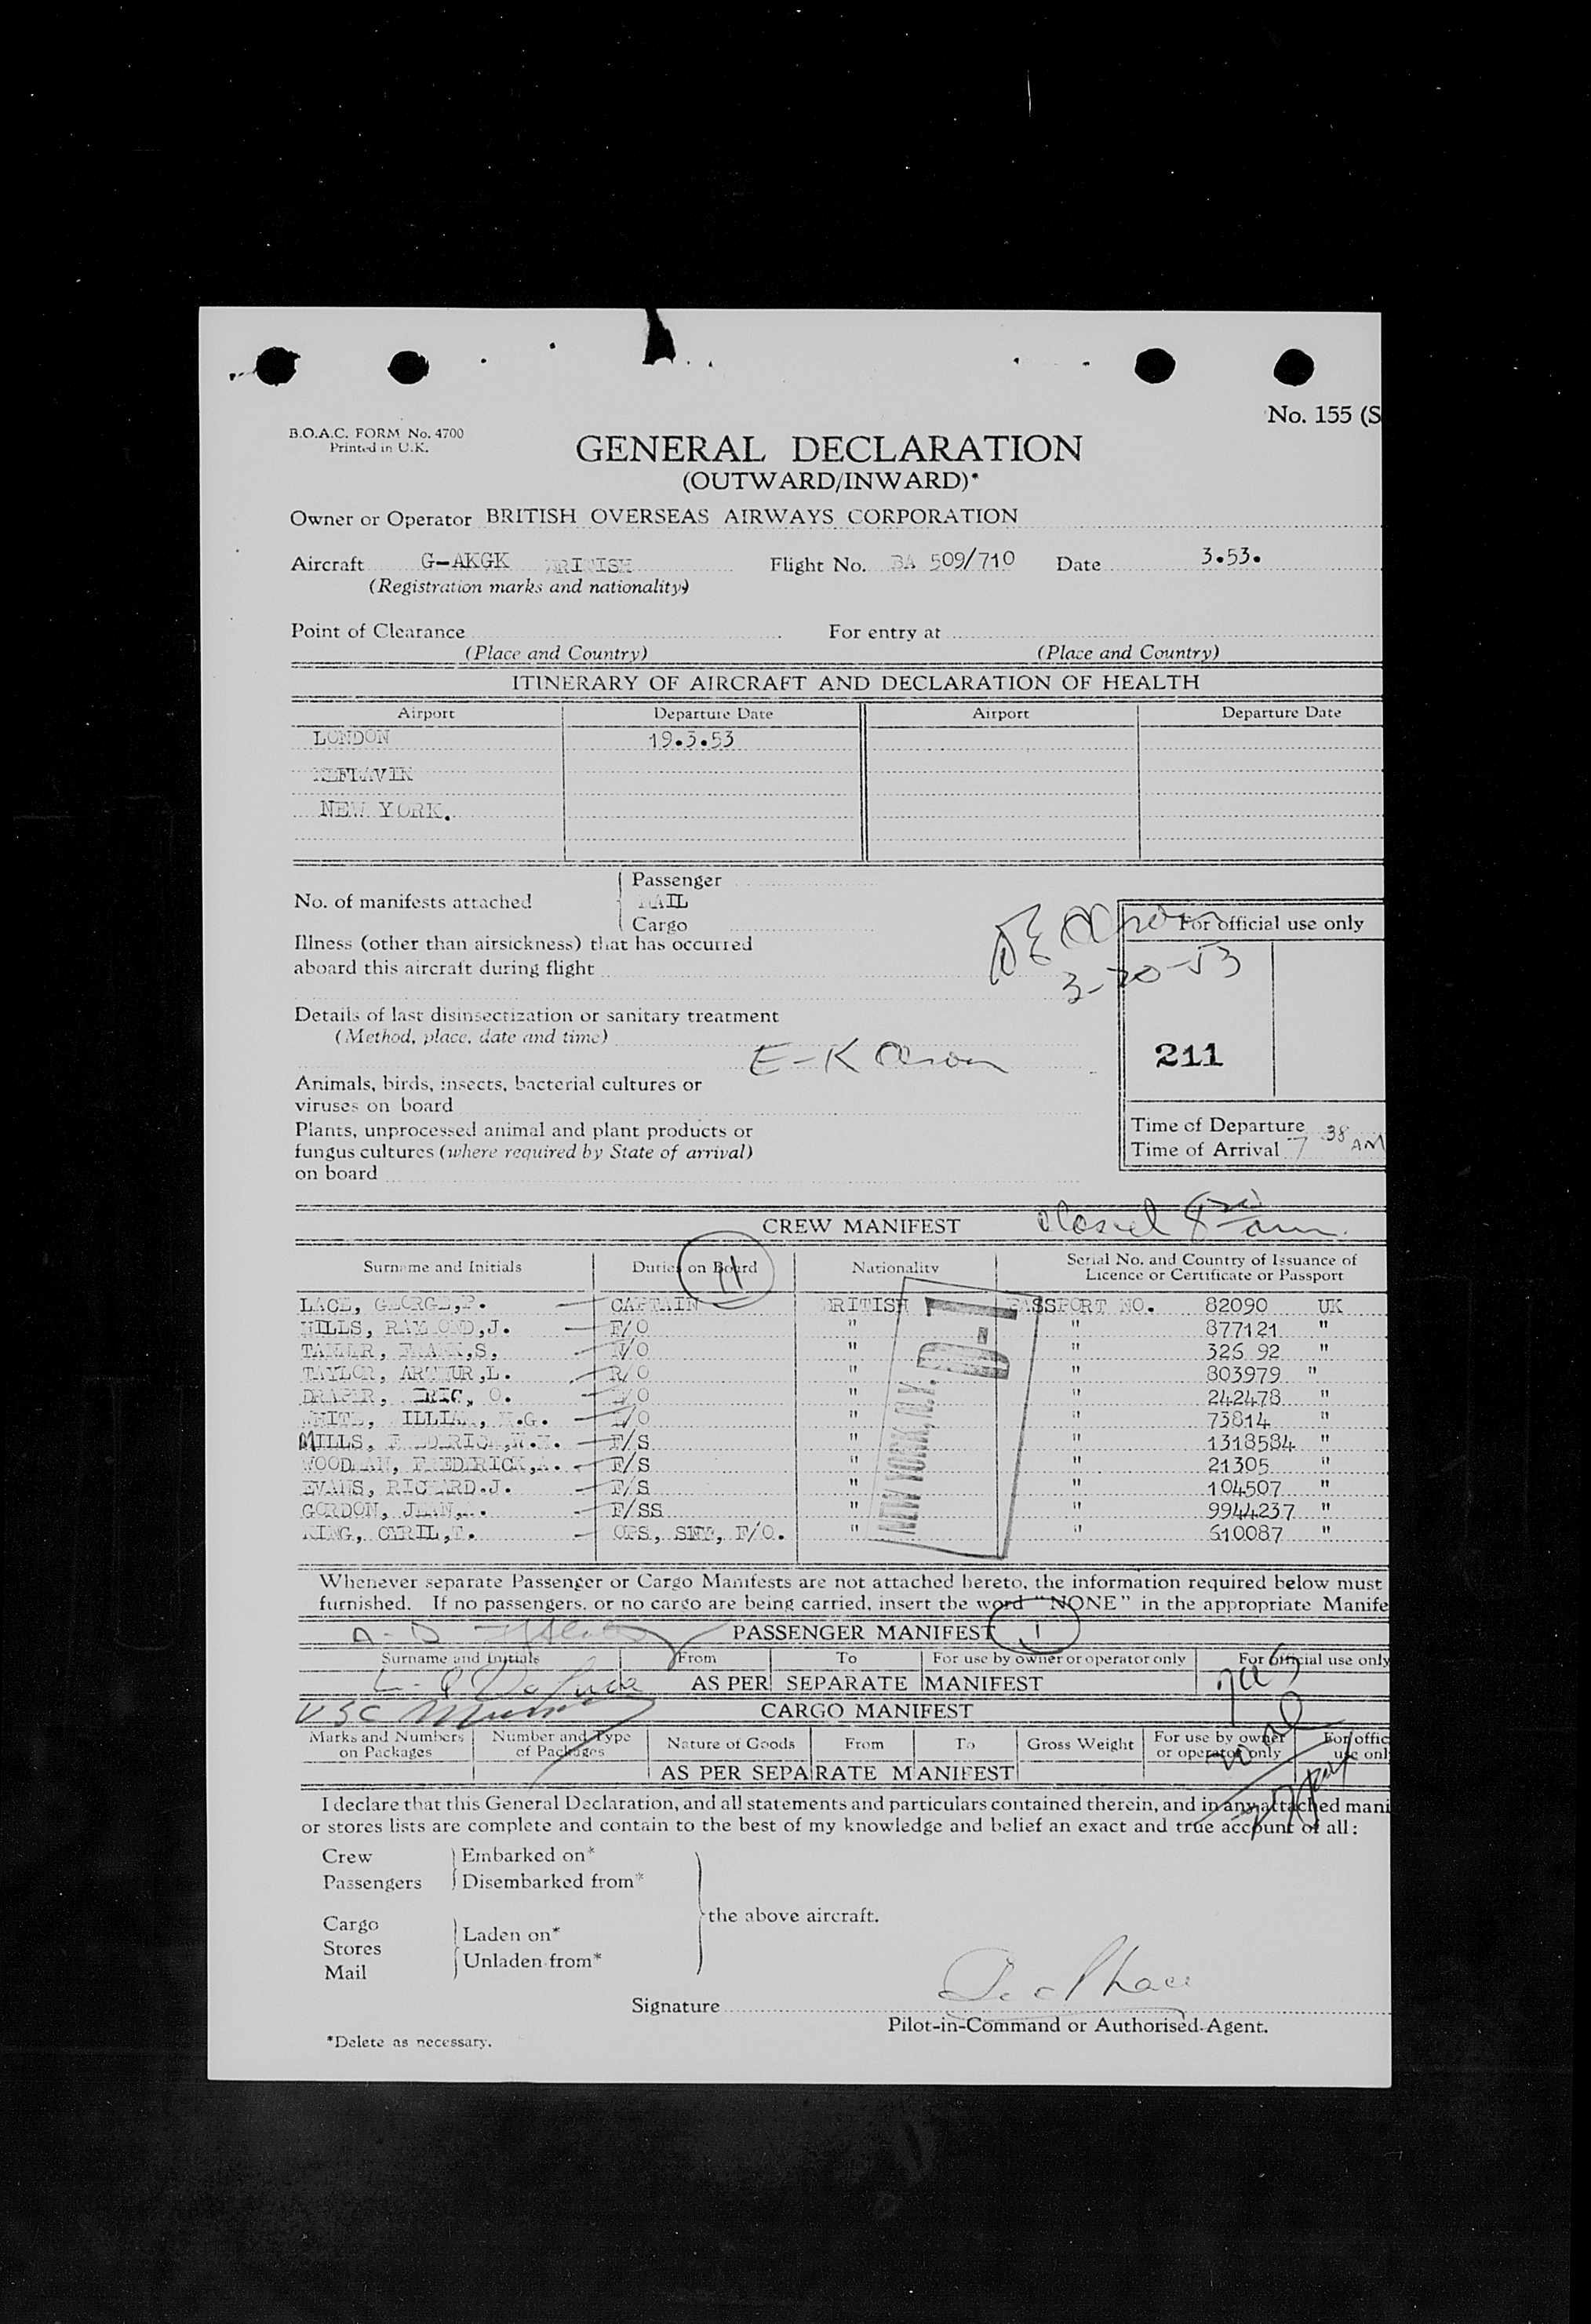 No. 155 (S
B.O.A.C. FORM No. 4700
Printed in U.K.
GENERAL DECLARATION
(OUTWARD/INWARD)*
Owner or Operator BRITISH OVERSEAS AIRWAYS CORPORATION
Aircraft G-AKGK BRITISH Flight No. BA 509/710 Date 3.53.
(Registration marks and nationality)
Point of Clearance For entry at
(Place and Country) (Place and Country)
ITINERARY OF AIRCRAFT AND DECLARATION OF HEALTH
Airport Departure Date Airport Departure Date
LONDON 19.3.53
KEFLAVIK
NEW YORK.
Passenger
No. of manifests attached MAIL
Cargo
For official use only
Illness (other than airsickness) that has occurred
aboard this aircraft during flight
3-20-53
Details of last disinsectization or sanitary treatment
(Method, place, date and time)
211
Animals, birds, insects, bacterial cultures or
viruses on board
Plants, unprocessed animal and plant products or
fungus cultures (where required by State of arrival)
on board
Time of Departure
Time of Arrival 7 38 AM
CREW MANIFEST
11
Surname and Initials Duties on Board Nationality Serial No. and Country of Issuance of
Licence or Certificate or Passport
LACE, GEORGE,P. CAPTAIN BRITISH PASSPORT NO. 82090 UK
RAYMOND,J. F/O " " 877121 "
FRANK,S, N/O " " 326 92 "
TAYLOR, ARTHUR,L. R/O " " 803979 "
DRAPER, ERIC, O. " " 242478 "
WHITE, WILLIAM, .G. " " 73814 "
MILLS, FREDERICK, F/S " " 1318584 "
WOODMAN, FREDERICK,A. F/S " " 21305 "
EVANS, RICHARD.J. F/S " " 104507 "
GORDON, JEAN, F/SS " " 9944237 "
KING, OPS, F/O. " " 610087 "
NEW YORK, N.Y. D-1
Whenever separate Passenger or Cargo Manifests are not attached hereto, the information required below must
furnished. If no passengers, or no cargo are being carried, insert the word "NONE" in the appropriate Manife
PASSENGER MANIFEST 1
Surname and Initials From To For use by owner or operator only For official use only
AS PER SEPARATE MANIFEST
CARGO MANIFEST
Marks and Numbers on Packages Number and Type of Packages Nature of Goods From To Gross Weight For use by owner or operator only For offic use onl
AS PER SEPARATE MANIFEST
I declare that this General Declaration, and all statements and particulars contained therein, and in any attached mani
or stores lists are complete and contain to the best of my knowledge and belief an exact and true account of all:
Crew Embarked on*
Passengers Disembarked from*
the above aircraft.
Cargo Laden on*
Stores
Mail Unladen from*
Signature
Pilot-in-Command or Authorised Agent.
*Delete as necessary.